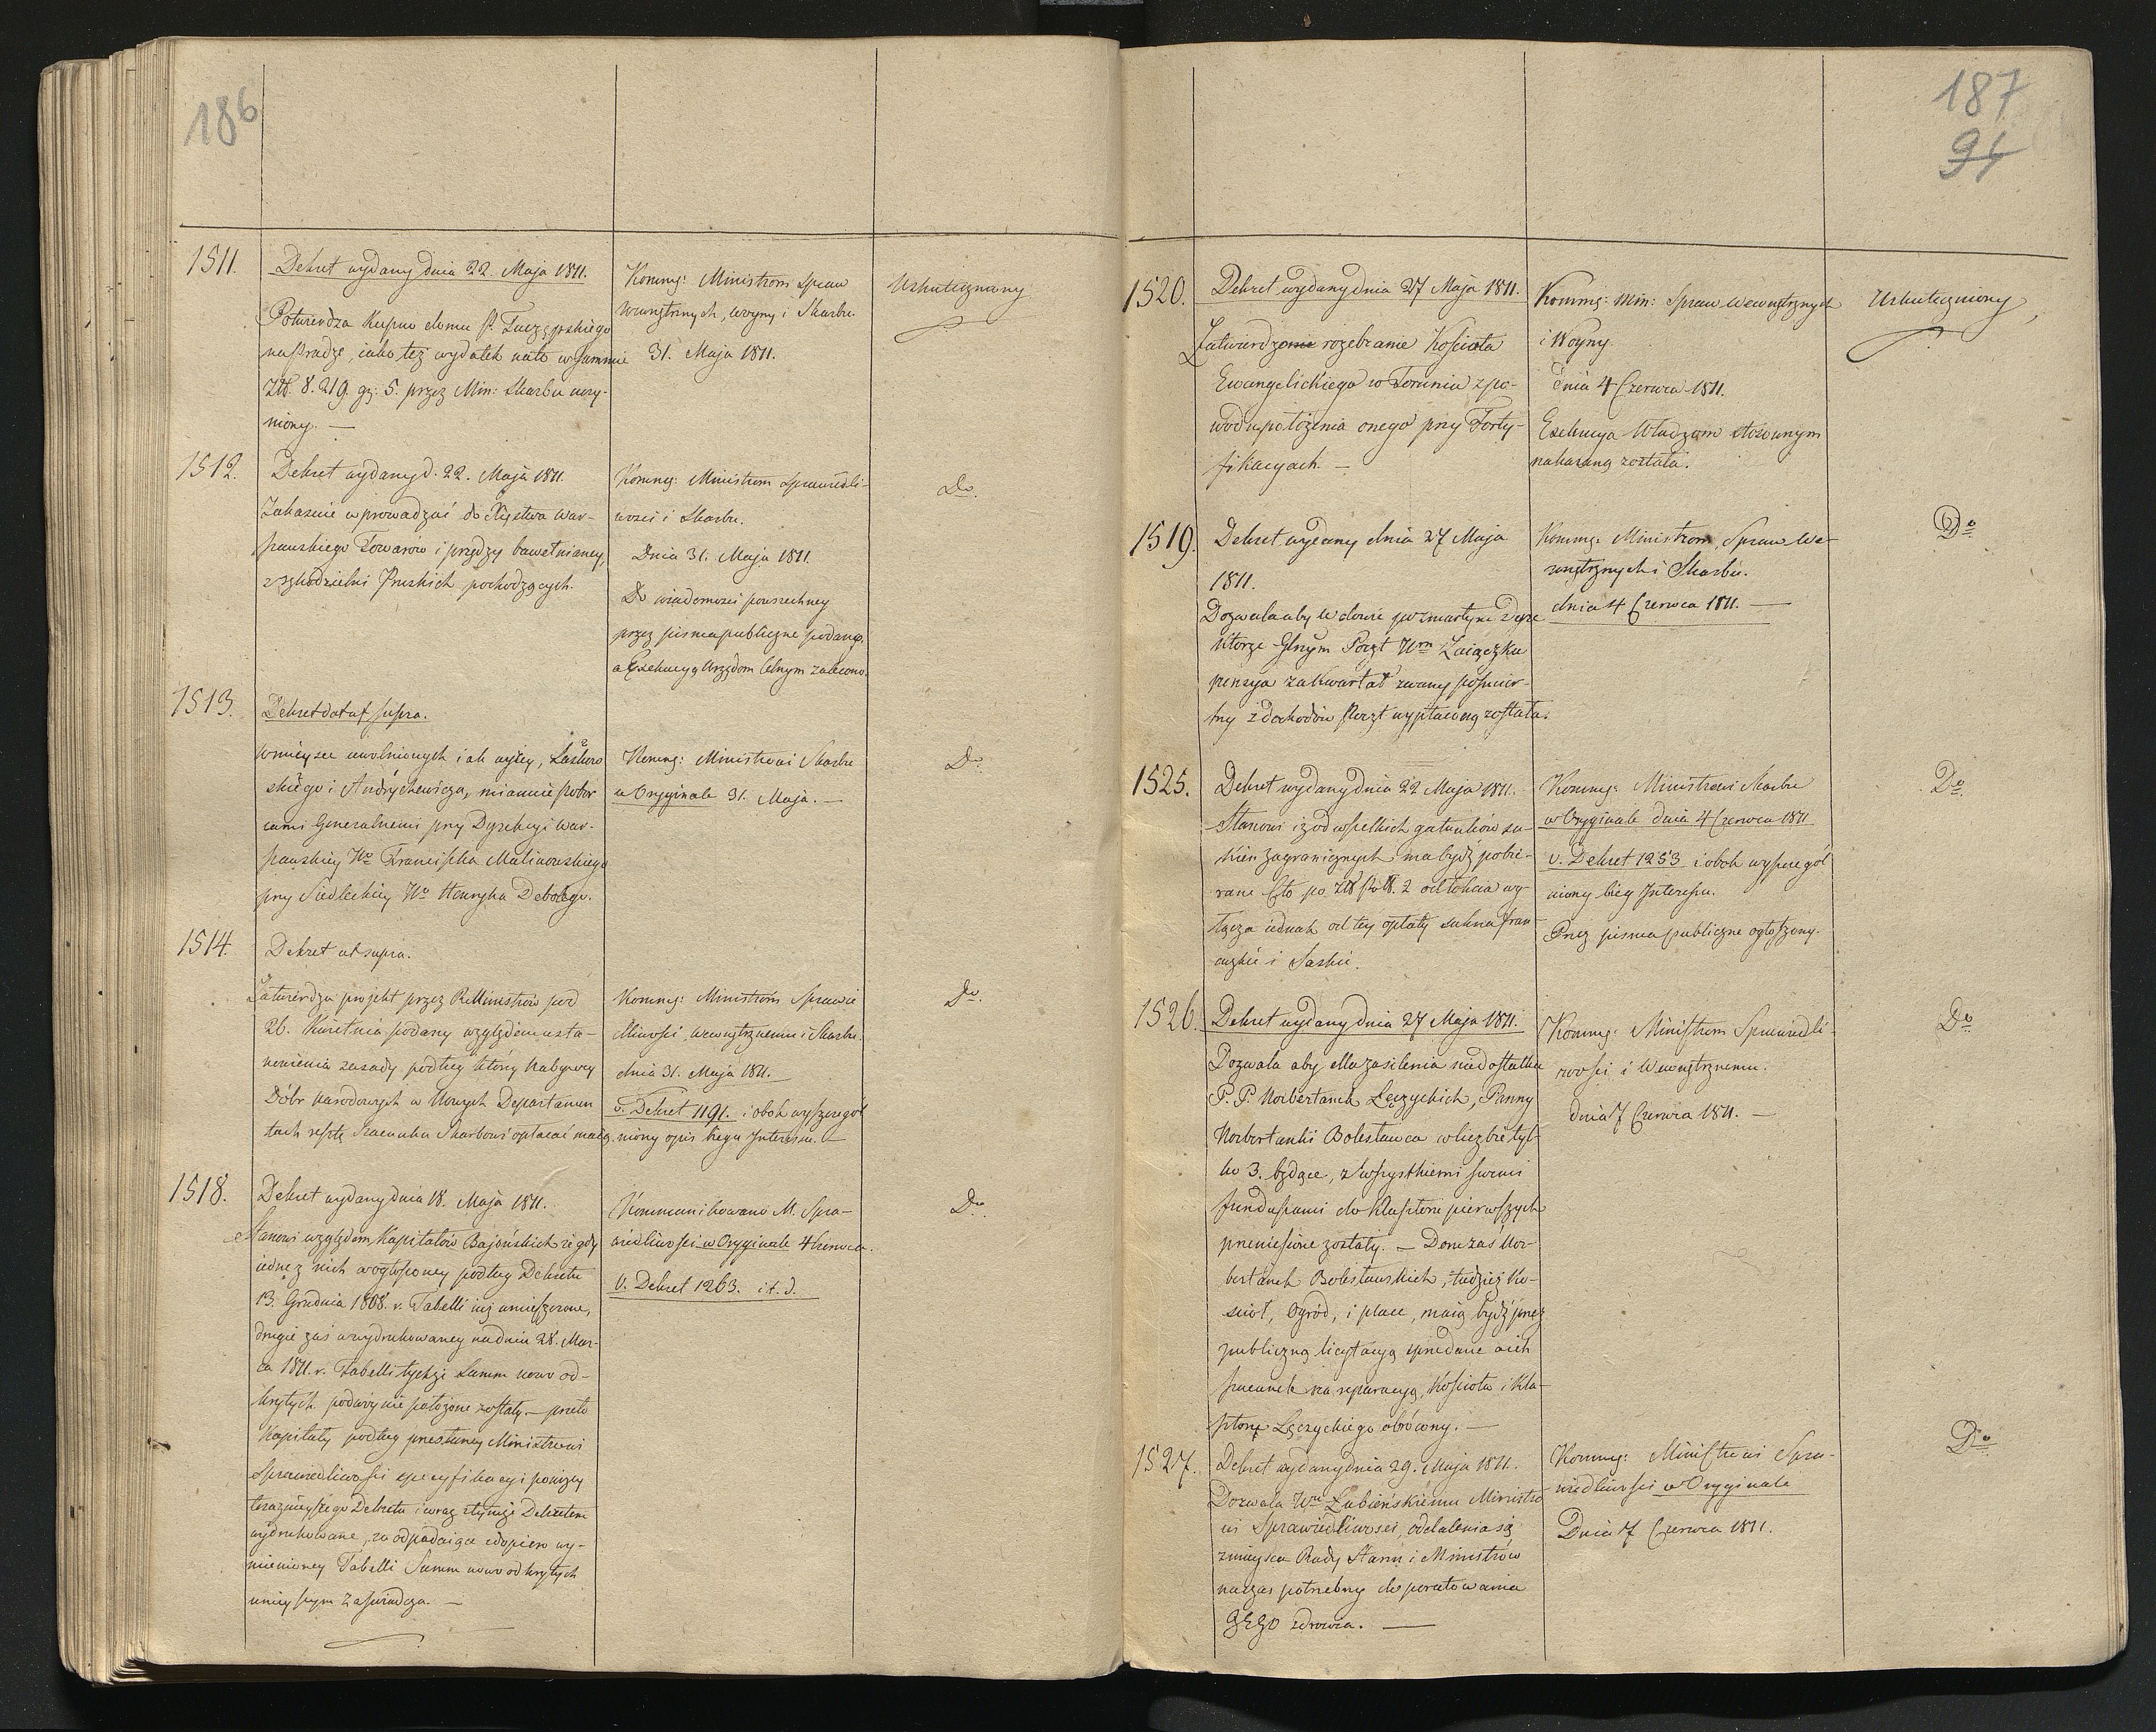 186
1511.
Dekret wydany dnia 22. Maja 1811.
Potwierdza Kupno domu
na Pradze, iako też wydatek na to w summie
Złł. 8.219. gr: 5. przez Min: Skarbu uczy-
niony. —
Kommg: Ministrom Spraw
Wewnętrznych, woyny i Skarbu
31. Maja 1811.
Uskuteczniony
1512.
Dekret wydany d. 22. Maja 1811.
Zakazuie wprowadzać do Xięstwa War-
szawskiego Towarów i przędzy bawełnianey,
z rękodzielni Pruskich pochodzących.
Kommg: Ministrom Sprawiedli-
wości i Skarbu.
Dnia 31. Maja 1811.
Do wiadomości powszechney
przez pisma publiczne podano,
a Exekucyą Urzędom Celnym zalecono.
Do.
1513.
Dekret dat ut supra.
W mieysce uwolnionych iak wyżey,
skiego i Andrychewicza, mianuie Pobor
cami Generalnemi przy Dyrekcyi War-
szawskiey Wo Franciszka Malinowskiego
przy Siedleckiey Wo Henryka Debolego.
Kommg: Ministrowi Skarbu
w Oryginale 31. Maja. —
Do.
1514.
Dekret ut supra.
Zatwierdza projekt przez R. Ministrów pod
26. Kwietnia podany względem usta-
nowienia zasady podług którey Nabywcy
Dóbr Narodowych w Nowych Departamen
tach resztę Szacunku Skarbowi opłacać maią.
Kommg: Ministrom Sprawie
dliwości, Wewnętrznemu i Skarbu.
dnia 31. Maja 1811.
v. Dekret 1191. i obok wyszczegól
niony opis biegu Interessu. —
Do.
1518.
Dekret wydany dnia 18. Maja 1811.
Stanowi względem Kapitałów Bajońskich że gdy
iedne z nich w ogłoszoney podług Dekretu
13. Grudnia 1808. r. Tabelli iuż umieszczone,
drugie zaś w wydrukowaney na dniu 28. Mar-
ca 1811. r. Tabelli tychże Summ nowo od-
krytych podwóynie położone zostały. — przeto
Kapitały podług przesłaney Ministrowi
Sprawiedliwości specyfikacyi poniżey
terażnieyszego Dekretu i wraz z tymże Dekretem
wydrukowane, za odpadaiące z dopiero wy-
mienioney Tabelli Summ nowo odkrytych
ninieyszym zaświadcza. —
Kommunikowano M. Spra-
wiedliwości w Oryginale 4 Czerwca.
v. Dekret 1263. i t. d.
Do.
187
94
1520.
Dekret wydany dnia 27 Maja 1811.
Zatwierdzone rozebranie Kościoła
Ewangelickiego w Toruniu z po-
wodu położenia onego przy Forty-
fikacyach. —
Kommg: Min: Spraw Wewnętrznych
i Woyny.
dnia 4 Czerwca 1811.
Exekucya Władzom stosownym
nakazaną została.
Uskuteczniony
1519.
Dekret wydany dnia 27 Maja
1811.
Dozwala aby Wdowie po zmarłym Dyre
ktorze Glnym Poczt Wm Zaiączku
pensya za kwartał zwany pośmier-
tny z dochodów Poczt wypłaconą została.
Kommg: Ministrom, Spraw We-
wnętrznych i Skarbu.
dnia 4 Czerwca 1811. —
Do
1525.
Dekret wydany dnia 22 Maja 1811.
Stanowi iż od wszelkich gatunków su-
kien zagranicznych ma bydź pobie-
rane Cło po 2 od łokcia wy-
łącza iednak od tey opłaty sukna fran-
cuzkie i Saskie.
Kommg: Ministrowi Skarbu
w Oryginale dnia 4 Czerwca 1811
v. Dekret 1253 i obok wyszczegól
niony bieg Interessu.
Przez pisma publiczne ogłoszony.
Do.
1526.
Dekret wydany dnia 27 Maja 1811.
Dozwala aby dla zasilenia niedostatku
P. P. Norbertanek Łęczyckich, Panny
Norbertanki Bolesławca w liczbie tyl-
ko 3. będące, z wszystkiemi swemi
funduszami do Klasztoru pierwszych
przeniesione zostały. — Dom zaś Nor-
bertanek Bolesławskich, tudzież Ko-
ściół, Ogród, i place, maią bydź przez
publiczną licytacyą sprzedane a ich
szacunek na reparacyą, Kościoła i Kla-
sztoru Łęczyckiego obrócony. —
Kommg: Ministrom Sprawiedli-
wości i Wewnętrznemu.
dnia 7 Czerwca 1811. —
Do
1527.
Dekret wydany dnia 29. Maja 1811.
Dozwala Wmu Łubieńskiemu Ministro
wi Sprawiedliwości, oddalenia się
z mieysca Rady Stanu i Ministrów
na czas potrzebny do poratowania
Jego zdrowia. —
Kommg: Ministrowi Spra-
wiedliwości w Oryginale
Dnia 7 Czerwca 1811.
Do